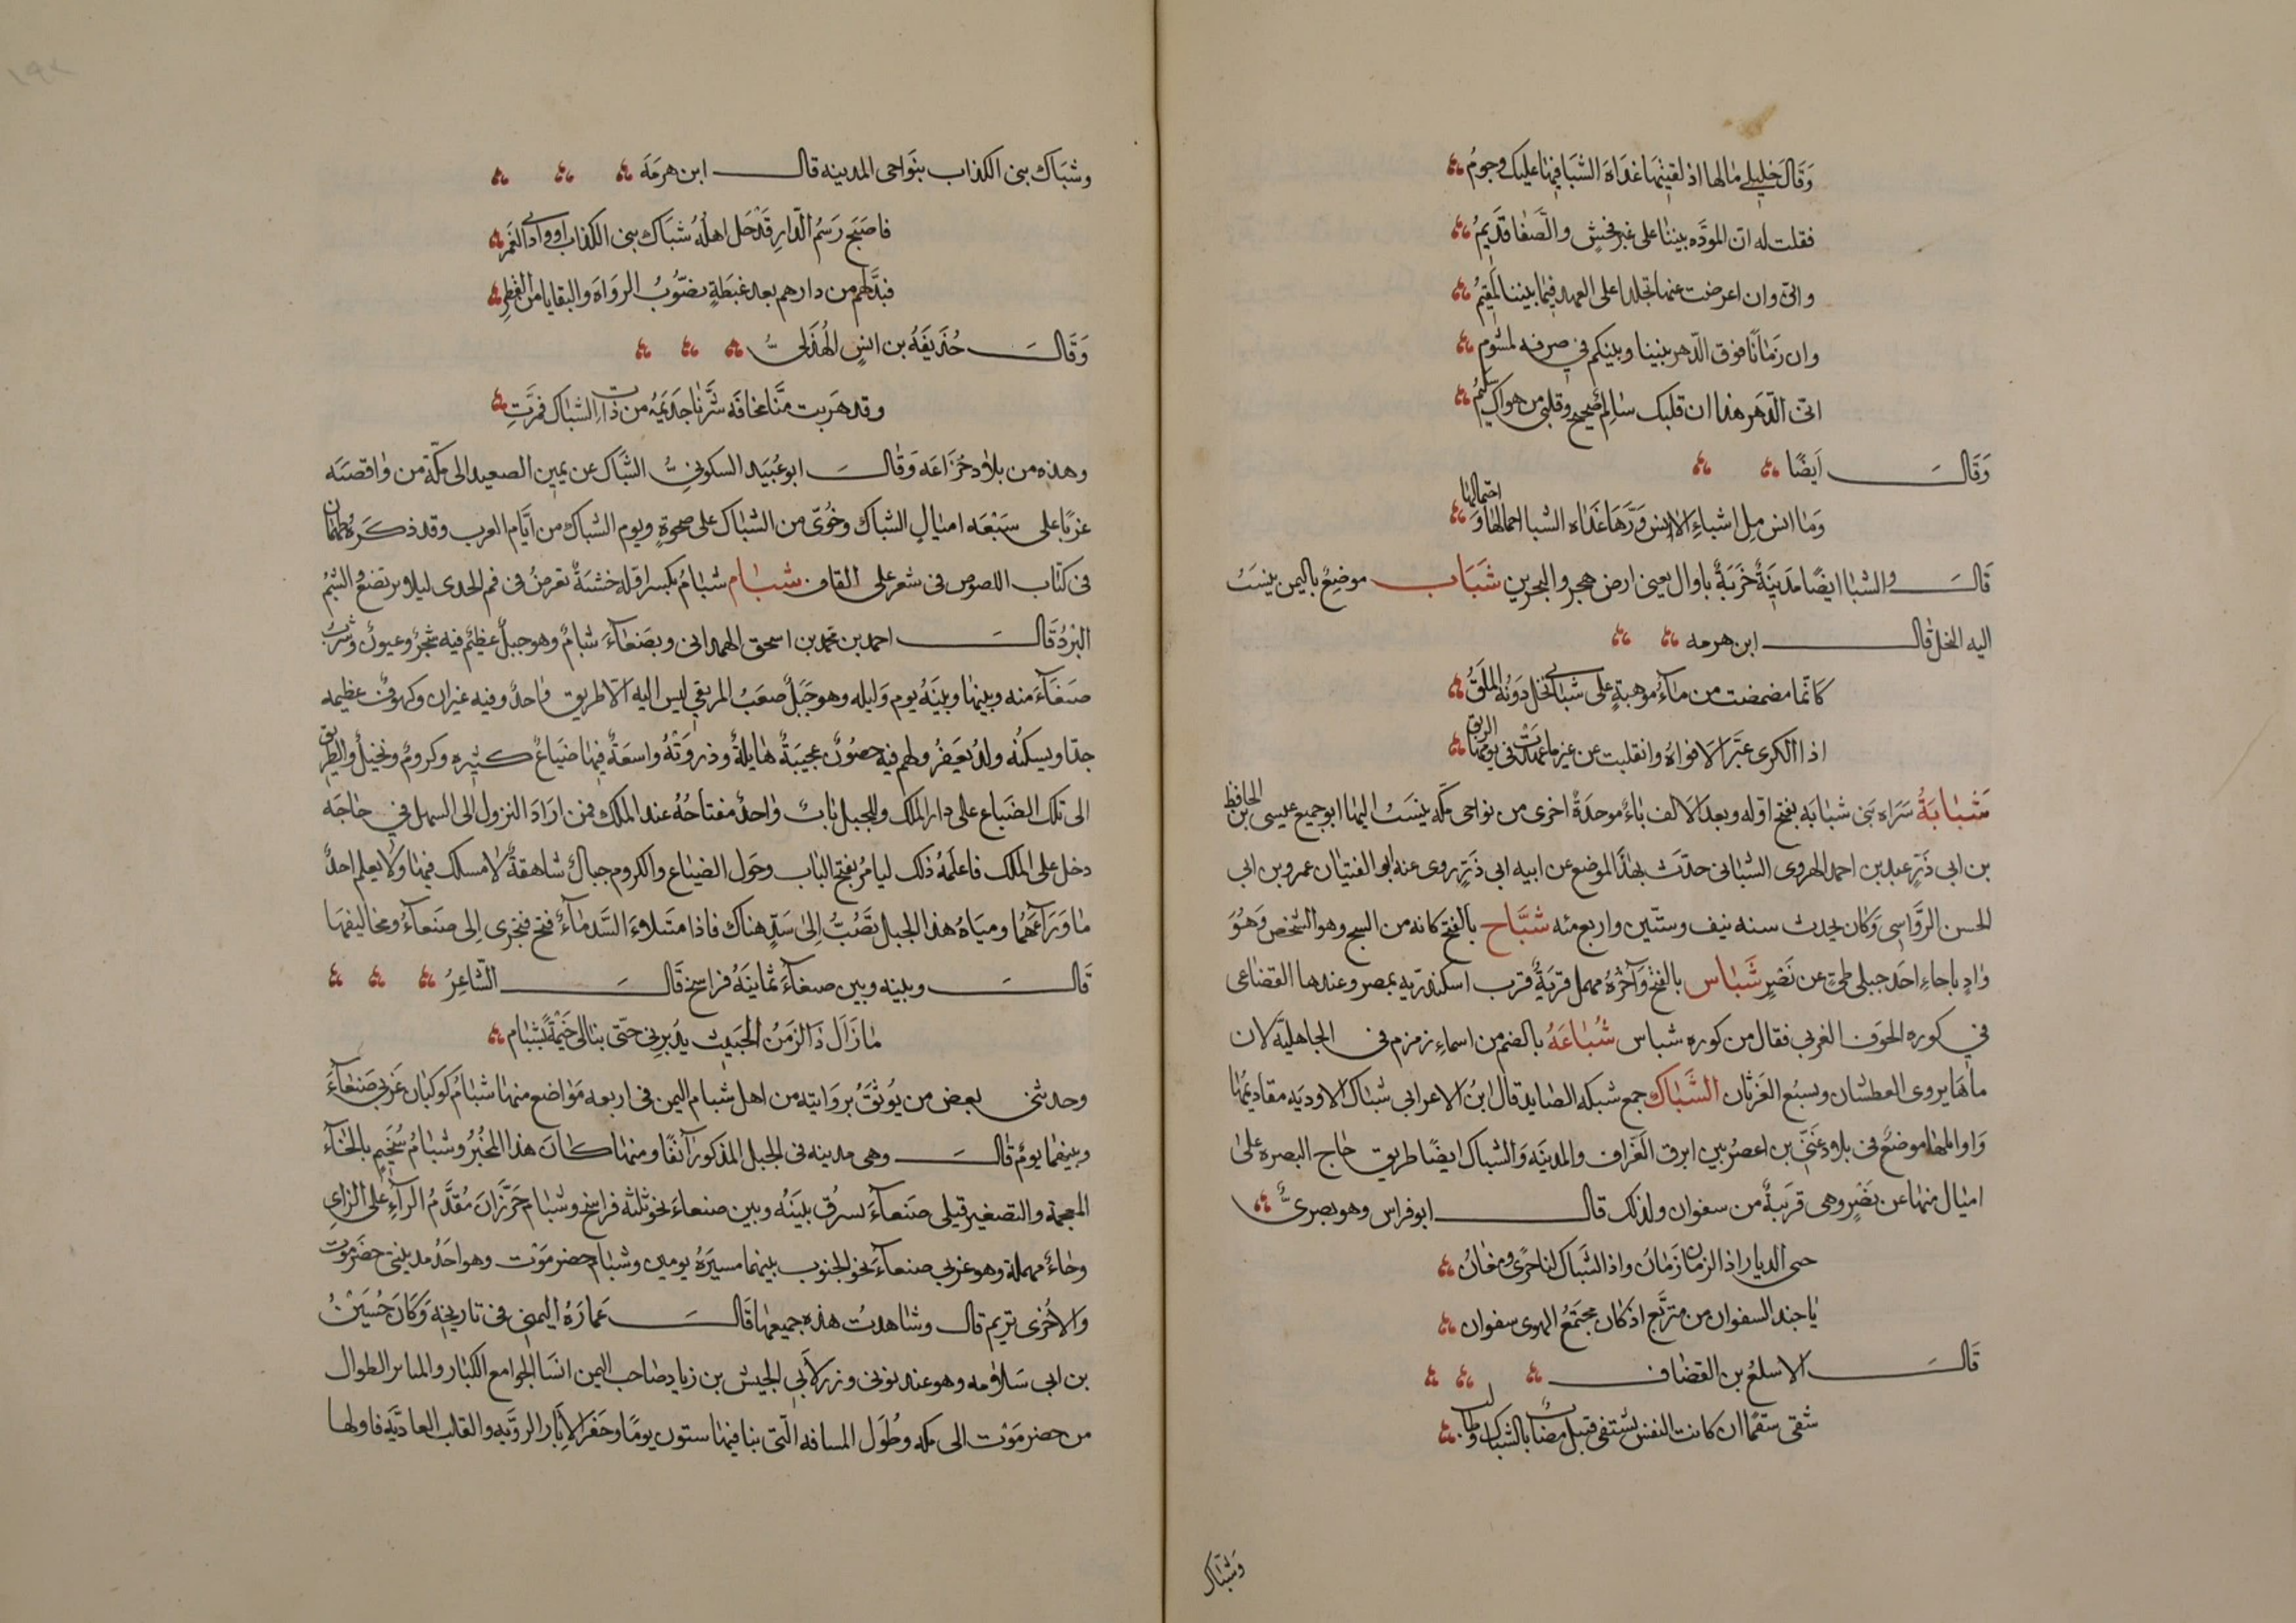 وَقَالَ خليلي مالها اذ لقيتها غداة الشبا فيها عليك وجومُ
فقلت له ان المودّه بيننا على غير فحشٍ والصَّفا قديمُ
وانى وان اعرضت عنها تجلدا على العهد فيما بيننا لمقيمُ
وان زمانًا فرق الدّهر بيننا وبينكم في صرفه لمشوم
انى الدّهر هذا ان قلبك سالِم صحيح وقلبى من هواك سليمُ
وَقَالَ اَيضًا
وَما انس مِل اشياءِ لا انس وَدَّهَا غداه الشبا احمالها واحتمالها
قَالَ والشبا ايضًا مَدينَةٌ خَرَبةٌ باوال يعنى ارض هجر والبحرين شَبَاب موضِعٌ باليمن ينسَبُ
اليه النخل قال ابن هرمه
كانّما مضمضت من ماءِ موهبةٍ على شبابى نخل دَونُه الملَقُ
اذا الكرى غيَّر الافواهُ وانقلبت عن غير ما عهدت فى يومها الريق
شَبَابَةُ سَرَاه بَنى شبابَه بفتح اوّله وبعد الالف باءٌ موحدَةٌ اخرى من نواحى مكّه ينسَبُ اليها ابو جميع عيسى بن الحافظ
بن ابى ذَرٍّ عبد بن احمد الهروى الشبابى حدّث بهذا الموضع عن ابيه ابى ذَرٍّ روى عنه ابو الفتيان عمرو بن ابى
الحسن الرَّوّاسى وَكان يحدث سنه نيف وستّين واربع مئه شبَّاح بالفتح كانه من الشبح وهو الشخص وَهُوَ
وَادٍ باجاءِ احَد جبلى طىّ عن نَصْرٍ شَبَاس بالفتح وَآخرُهُ مهمل قريَةٌ قرب اسكندريّه بمصر وعندها القضاعى
في كوره الحوف الغربي فقال من كوره شباس شُبَاعَهُ بالضم من اسماءِ زمزم فى الجاهليَّه لان
ماءَها يروى العطشان ويسبُع الغَرثان الشَّبَاك جمع شبكه الصايد قال ابنُ الاعرابى شباك الاوديَه مقاديمُها
وَاوايلها موضعٌ فى بلاد غَنىّ بن اعصُر بين ابرق العَزّاف والمدينَه وَالشباك ايضًا طريق حاج البصره على
اميال منها عن نَصْرٍ وهى قريبةٌ من سفوان ولذلك قال ابو فراس وهو بصرىٌّ
حى الديار اذ الزمان زَمَانُ واذ الشَّباك لنا حَرًى ومغانُ
يا حبذ السفوان من متربَّع اذ كان مجتَمَعُ الهوى سفوان
قَالَ الاسلعُ بن القضاف
شفى سقمًا ان كانت النفس تشتفى قتيل مصاب بالشباك وطالب
وَشبَاك
وشبَاك بنى الكذاب بنَواحى المدينه قال ابن هرمَهَ
فاصبَحَ رَسمُ الدّار قَدْ حَل اهلُهُ شبَاك بنى الكذاب او وادى الغَمَر
فبَدَّلهم من دارهم بعد غبطَةٍ نضُوبُ الروَاه والبقايا من القطر
وَقَالَ حُذَيفَهُ بن انسٍ الهُذلىُّ
وقد هَربت منّا مخافَه شرّنا جذيمَهُ من ذات الشباك فمرَّتِ
وهذه من بلاد خُزَاعَه وَقَالَ ابو عُبَيد السكونىُّ الشَّباك عن يمين الصعيد الى مكّه من وَاقصَه
غربًا على سبعَه اميالٍ الشباك وخُوىّ من الشباك على ضحوةٍ ويوم الشباك من ايَّام العرب وقد ذكَرَهُ طهمان
فى كتاب اللصوص فى شعر على القاف شَبام شبَامُ بكسر اوّله خشبَةٌ تعرضُ فى فم الجدى ليلا يرتضع والشبمُ
البَرْدُ قَالَ احمد بن محمد بن اسحق الهمدانى وبصَنعاءَ شبامُ وهو جبلٌ عظيمٌ فيه شجرٌ وعيونٌ وشربُ
صنعَاءَ منه وبينها وبينَهُ يوم وَليله وهو جَبَلٌ صعَبُ المرتقى ليس اليه الّا طريق وَاحدٌ وفيه غيران وكهوفٌ عظيمه
جدّا ويسكنُه ولدُ يَعفِرُ ولهم فيه حصُونٌ عجيبَةٌ هايلةٌ وذروَتُهُ واسعَةٌ فيها ضيَاعٌ كثيره وكرومٌ ونخيلٌ والطريق
الى تلك الضيَاع على دار الملك وللجبل بابٌ وَاحدٌ مفتاحُهُ عند الملك فمن ارَادَ النزول الى السهل في حاجَه
دخل على الملك فاعلَمهُ ذلك ليامُر بفتح الباب وحَول الضياع والكروم جبالٌ شاهقةٌ لا مسلك فيها وَلا يعلم احدٌ
ما وَرآءَها ومياهُ هذا الجبل تصُبُّ اِلىٰ سَدٍّ هناك فاذا امتَلاءَ السَّد ماءً فتح فيجرى اِلى صنعاءَ ومخاليفها
قَالَ وبينه وبين صنعاءَ ثمانيَهُ فراسخ قَالَ الشّاعِرُ
مَا زَالَ ذَا الزمَنُ الخبيث يدُيرنى حتّى بنا لى خَيمْةً بشبَام
وحدثنى بعض من يُوثقُ بروَايته من اهل شبام اليمن فى اربعه مَوَاضع منها شبَامُ كَوكبَان غَربى صَنعاءَ
وبينهما يومٌ قَالَ وهى مدينه فى الجبل المذكور آنفًا ومنها كَانَ هذا المخبرُ وشبامُ سُخَيمٍ بالخاءَ
المعجمة والتصغير قبلى صَنعآءَ بسرُق بينَهُ وبين صنعاءَ نحو ثلثه فراسخ وشبَام حَرَّازَان مُقدَّمُ الراءِ على الزاىِ
وحَاءٌ مهملة وهو غربى صنعاءَ نحو الجنوب بينهما مسيَرةُ يومين وشبَام حضر مَوْت وهو احَدُ مدينتىْ حضرموت
والاخرى تريم قال وشاهدتُ هذه جميعها قَالَ عَمارَةُ اليمنى فى تاريخه وَكَانَ حُسَينُ
بن ابى سَلاٰمه وهو عبد نوبى وزرلاَبى الجيش بن زياد صَاحب اليمن انشا الجوامع الكبار والمنابر الطوال
من حضر مَوْت الى مكه وطُوَل المسافه الّتى بنا فيها ستون يومًا وحفر الابار الرويَّه والقلب العاديَّه فاولها